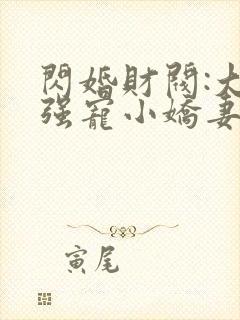 閃婚財閥:大
强寵小嬌妻
寅尾